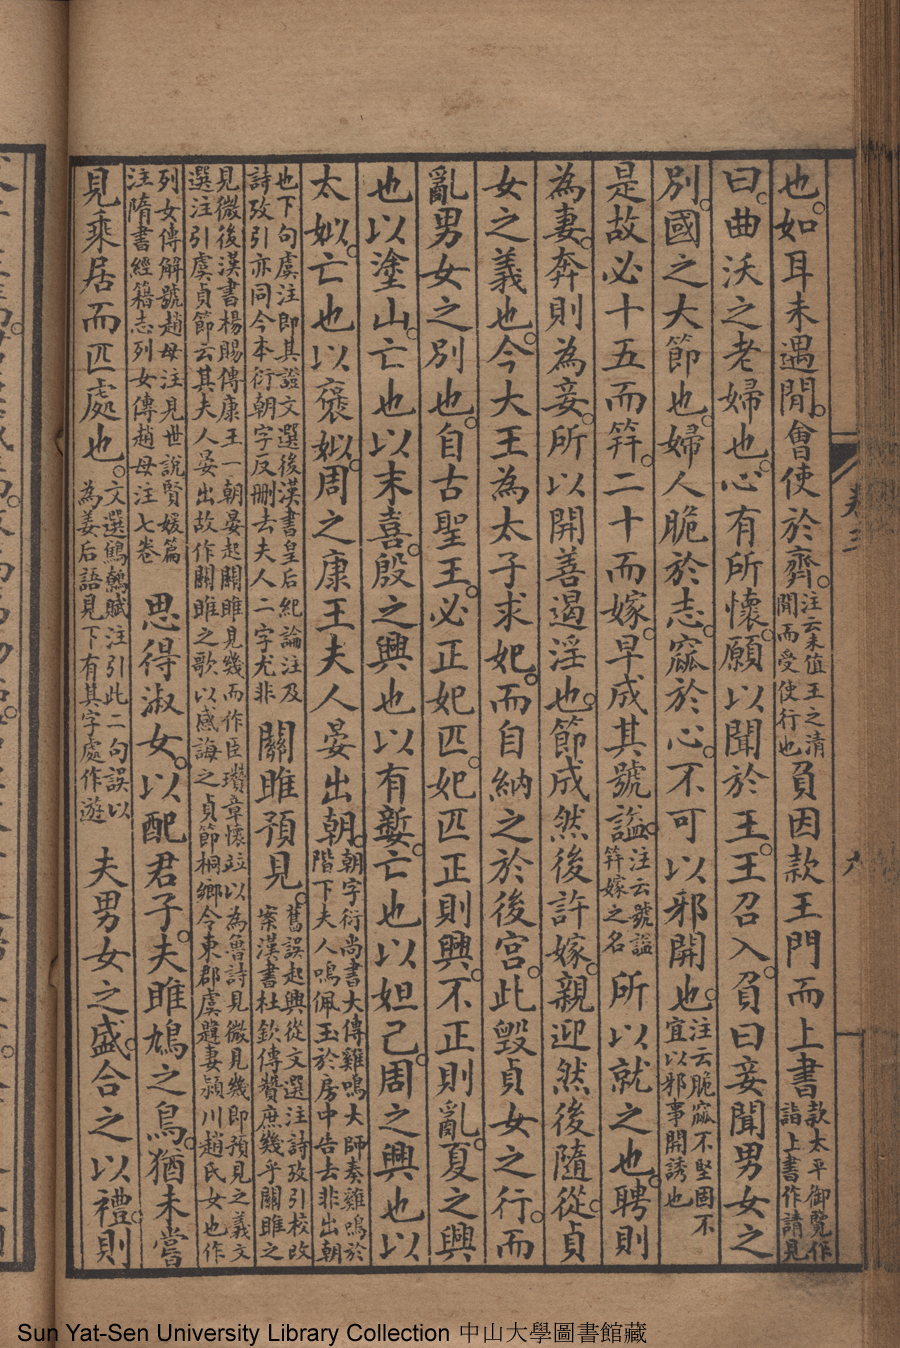 也如耳未遇閒會使於齊注云未值王之清閒而受使行也負因款王門而上書款太平御覽作詣上書作請見
曰曲沃之老婦也心有所懷願以聞於王王召入負曰妾聞男女之
別國之大節也婦人脆於志窳於心不可以邪開也注云脆窳不堅固不宜以邪事開誘也
是故必十五而笄二十而嫁早成其號謚注云號謚笄嫁之名所以就之也聘則
為妻奔則為妾所以開善遏淫也節成然後許嫁親迎然後隨從貞
女之義也今大王為太子求妃而自納之於後宮此毀貞女之行而
亂男女之別也自古聖王必正妃匹妃匹正則興不正則亂夏之興
也以塗山亡也以末喜殷之興也以有㜪亡也以妲己周之興也以
太姒亡也以襃姒周之康王夫人晏出朝朝字衍尚書大傳雞鳴大師奏雞鳴於階下夫人鳴佩玉於房中告去非出朝
也下句虞注即其證文選後漢書皇后紀論注及詩攷引亦同今本衍朝字反刪去夫人二字尤非關雎預見舊誤起興從文選注詩攷引校改案漢書杜欽傳贊庶幾乎關雎之
見微後漢書楊賜傳康王一朝晏起關雎見幾而作臣瓚章懷竝以為魯詩見微見幾即預見之義文選注引虞貞節云其夫人晏出故作關雎之歌以感誨之貞節桐鄉令東郡虞韙妻潁川趙氏女也作
列女傳解號趙母注見世說賢媛篇注隋書經籍志列女傳趙母注七卷思得淑女以配君子夫雎鳩之鳥猶未嘗
見乘居而匹處也文選鷦鷯賦注引此二句誤以為姜后語見下有其字處作遊夫男女之盛合之以禮則
卷三
六
Sun Yat-Sen University Library Collection 中山大學圖書館藏